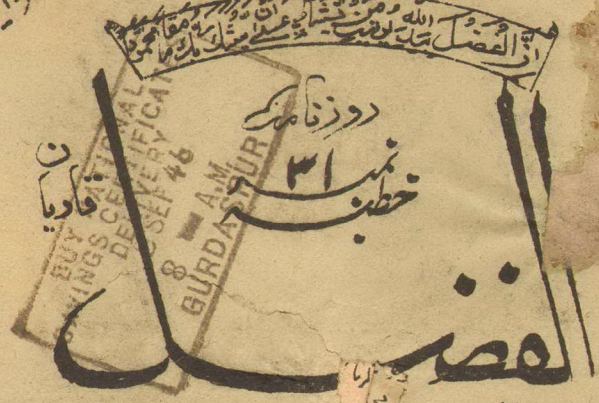 ان الفضل بيد الله يؤتيه من يشاء عسى ان يبعثك ربك مقاما محمودا
روزنامہ
خطبہ نمبر ۳۱
قادیان
الفضل
BUY NATIONAL
SAVINGS CERTIFICA
DELIVERY
SEP 46
8 - A.M
GURDASPUR